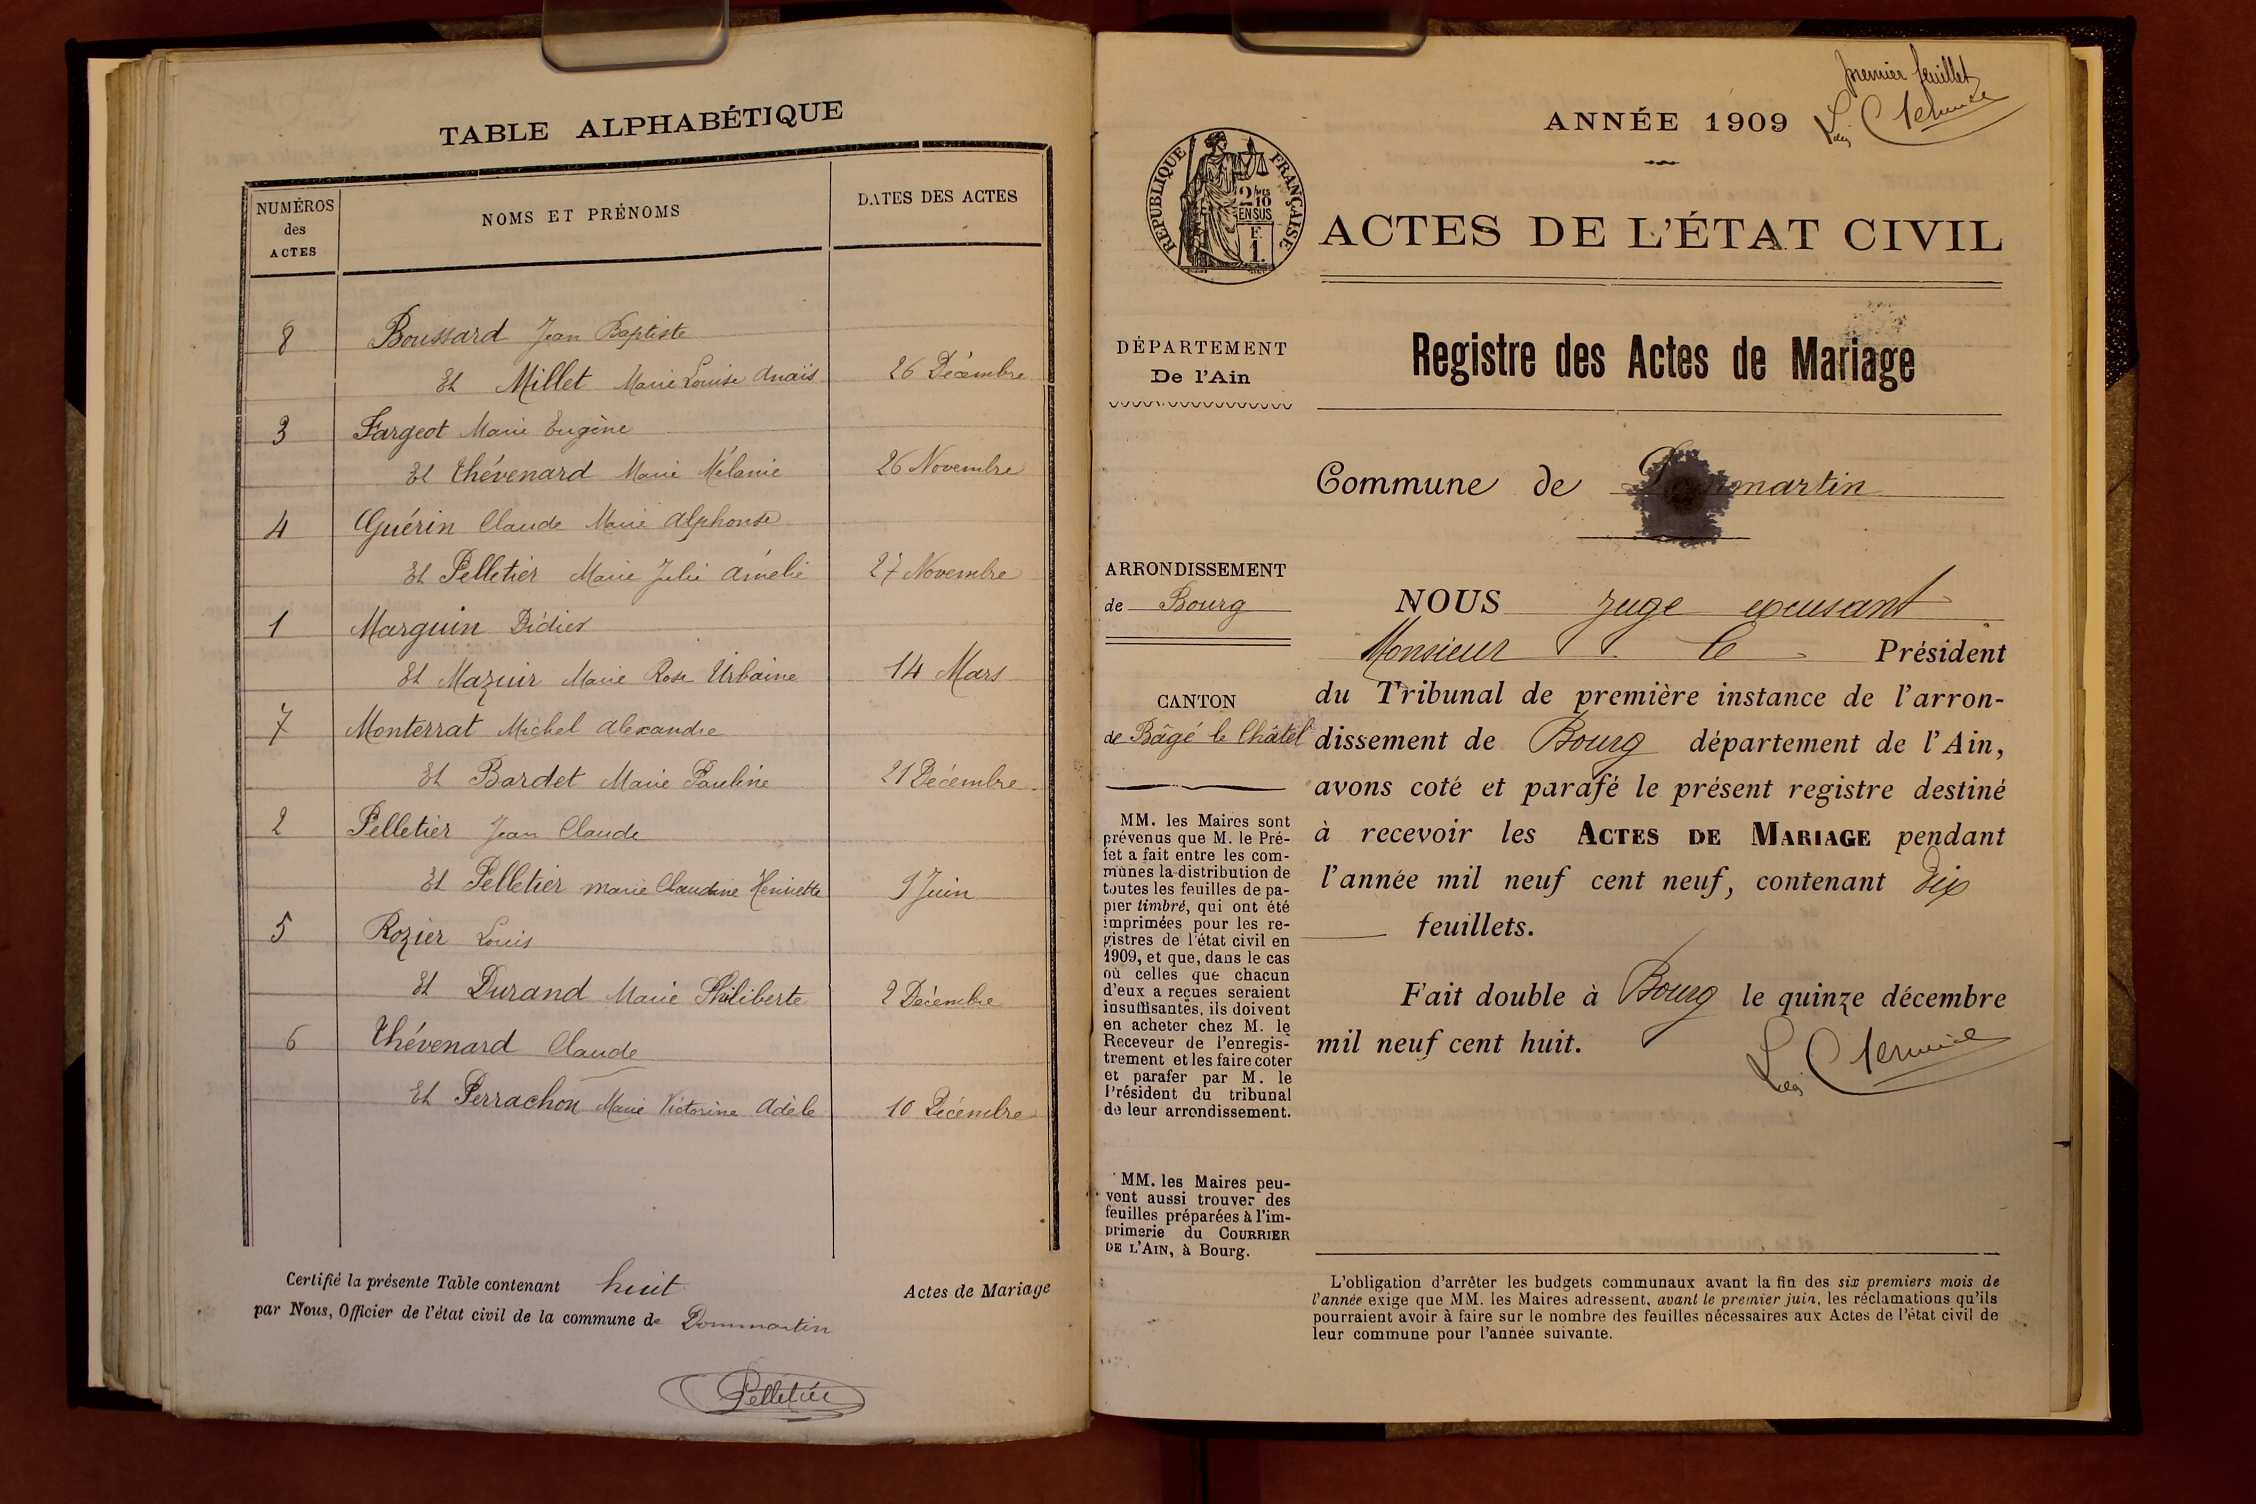 TABLE ALPHABÉTIQUE
NUMÉROS
des
ACTES
NOMS ET PRÉNOMS
DATES DES ACTES
8 Boussard Jean Baptiste
Et Millet Marie Louise Anaïs 26 Décembre
3 Fargeot Marie Eugène
Et Thévenard Marie Mélanie 26 Novembre
4 Guérin Claude Marie Alphonse
Et Pelletier Marie Julie Amélie 27 Novembre
1 Marguin Didier
Et Mazuir Marie Rose Urbaine 14 Mars
7 Monterrat Michel Alexandre
Et Bardet Marie Pauline 21 Décembre
2 Pelletier Jean Claude
Et Pelletier Marie Claudine Henriette 9 Juin
5 Rozier Louis
Et Durand Marie Philiberte 2 Décembre
6 Thévenard Claude
Et Perrachon Marie Victorine Adèle 10 Décembre
Certifié la présente Table contenant huit Actes de Mariage
par Nous, Officier de l'état civil de la commune de Dommartin
Pelletier
premier feuillet
ANNÉE 1909
RÉPUBLIQUE FRANÇAISE
2/10
EN SUS
F.
1.
ACTES DE L'ÉTAT CIVIL
DÉPARTEMENT
De l'Ain
Registre des Actes de Mariage
Commune de Dommartin
ARRONDISSEMENT
de Bourg
CANTON
de Bâgé le Châtel
MM. les Maires sont
prévenus que M. le Pré-
fet a fait entre les com-
munes la distribution de
toutes les feuilles de pa-
pier timbré, qui ont été
imprimées pour les re-
gistres de l'état civil en
1909, et que, dans le cas
où celles que chacun
d'eux a reçues seraient
insuffisantes, ils doivent
en acheter chez M. le
Receveur de l'enregis-
trement et les faire coter
et parafer par M. le
Président du tribunal
de leur arrondissement.
MM. les Maires peu-
vent aussi trouver des
feuilles préparées à l'im-
primerie du COURRIER
DE L'AIN, à Bourg.
NOUS juge excusant
Monsieur le Président
du Tribunal de première instance de l'arron-
dissement de Bourg département de l'Ain,
avons coté et parafé le présent registre destiné
à recevoir les ACTES DE MARIAGE pendant
l'année mil neuf cent neuf, contenant dix
feuillets.
Fait double à Bourg le quinze décembre
mil neuf cent huit.
L'obligation d'arrêter les budgets communaux avant la fin des six premiers mois de
l'année exige que MM. les Maires adressent, avant le premier juin, les réclamations qu'ils
pourraient avoir à faire sur le nombre des feuilles nécessaires aux Actes de l'état civil de
leur commune pour l'année suivante.